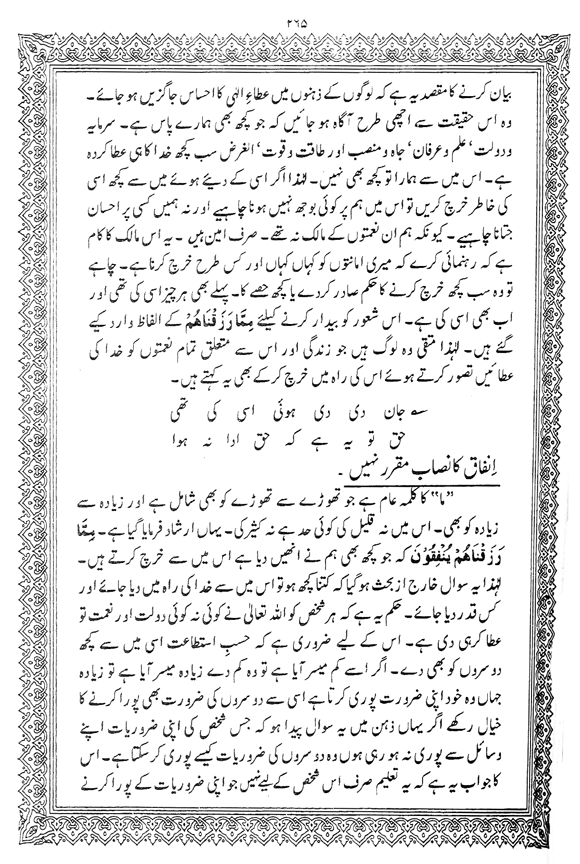 ۲۶۵
بیان کرنے کا مقصد یہ ہے کہ لوگوں کے ذہنوں میں عطاءِ الٰہی کا احساس جاگزیں ہو جائے۔
وہ اس حقیقت سے اچھی طرح آگاہ ہو جائیں کہ جو کچھ بھی ہمارے پاس ہے۔ سرمایہ
و دولت‘ علم و عرفان‘ جاہ و منصب اور طاقت و قوت‘ الغرض سب کچھ خدا کا ہی عطا کردہ
ہے۔ اس میں سے ہمارا تو کچھ بھی نہیں۔ لہٰذا اگر اسی کے دیئے ہوئے میں سے کچھ اسی
کی خاطر خرچ کریں تو اس میں ہم پر کوئی بوجھ نہیں ہونا چاہیے اور نہ ہمیں کسی پر احسان
جتانا چاہیے۔ کیونکہ ہم ان نعمتوں کے مالک نہ تھے۔ صرف امین ہیں ۔ یہ اس مالک کا کام
ہے کہ رہنمائی کرے کہ میری امانتوں کو کہاں کہاں اور کس طرح خرچ کرنا ہے۔ چاہے
تو وہ سب کچھ خرچ کرنے کا حکم صادر کر دے یا کچھ حصے کا۔ پہلے بھی ہر چیز اسی کی تھی اور
اب بھی اسی کی ہے۔ اس شعور کو بیدار کرنے کیلئے مِمَّا رَزَقْنَاهُمْ کے الفاظ وارد کیے
گئے ہیں۔ لہٰذا متقی وہ لوگ ہیں جو زندگی اور اس سے متعلق تمام نعمتوں کو خدا کی
عطائیں تصور کرتے ہوئے اس کی راہ میں خرچ کر کے بھی یہ کہتے ہیں۔
؎ جان دی دی ہوئی اسی کی تھی
حق تو یہ ہے کہ حق ادا نہ ہوا
اِنفاق کا نصاب مقرر نہیں ۔
”ما“ کا کلمہ عام ہے جو تھوڑے سے تھوڑے کو بھی شامل ہے اور زیادہ سے
زیادہ کو بھی۔ اس میں نہ قلیل کی کوئی حد ہے نہ کثیر کی۔ یہاں ارشاد فرمایا گیا ہے۔ مِمَّا
رَزَقْنَاهُمْ يُنْفِقُوْنَ کہ جو کچھ بھی ہم نے انھیں دیا ہے اس میں سے خرچ کرتے ہیں۔
لہٰذا یہ سوال خارج از بحث ہو گیا کہ کتنا کچھ ہو تو اس میں سے خدا کی راہ میں دیا جائے اور
کس قدر دیا جائے۔ حکم یہ ہے کہ ہر شخص کو اللہ تعالیٰ نے کوئی نہ کوئی دولت اور نعمت تو
عطا کر ہی دی ہے۔ اس کے لیے ضروری ہے کہ حسبِ استطاعت اسی میں سے کچھ
دوسروں کو بھی دے۔ اگر اسے کم میسر آیا ہے تو وہ کم دے زیادہ میسر آیا ہے تو زیادہ
جہاں وہ خود اپنی ضرورت پوری کرتا ہے اسی سے دوسروں کی ضرورت بھی پورا کرنے کا
خیال رکھے اگر یہاں ذہن میں یہ سوال پیدا ہو کہ جس شخص کی اپنی ضروریات اپنے
وسائل سے پوری نہ ہو رہی ہوں وہ دوسروں کی ضروریات کیسے پوری کر سکتا ہے۔ اس
کا جواب یہ ہے کہ یہ تعلیم صرف اس شخص کے لیے نہیں جو اپنی ضروریات کے پورا کرنے